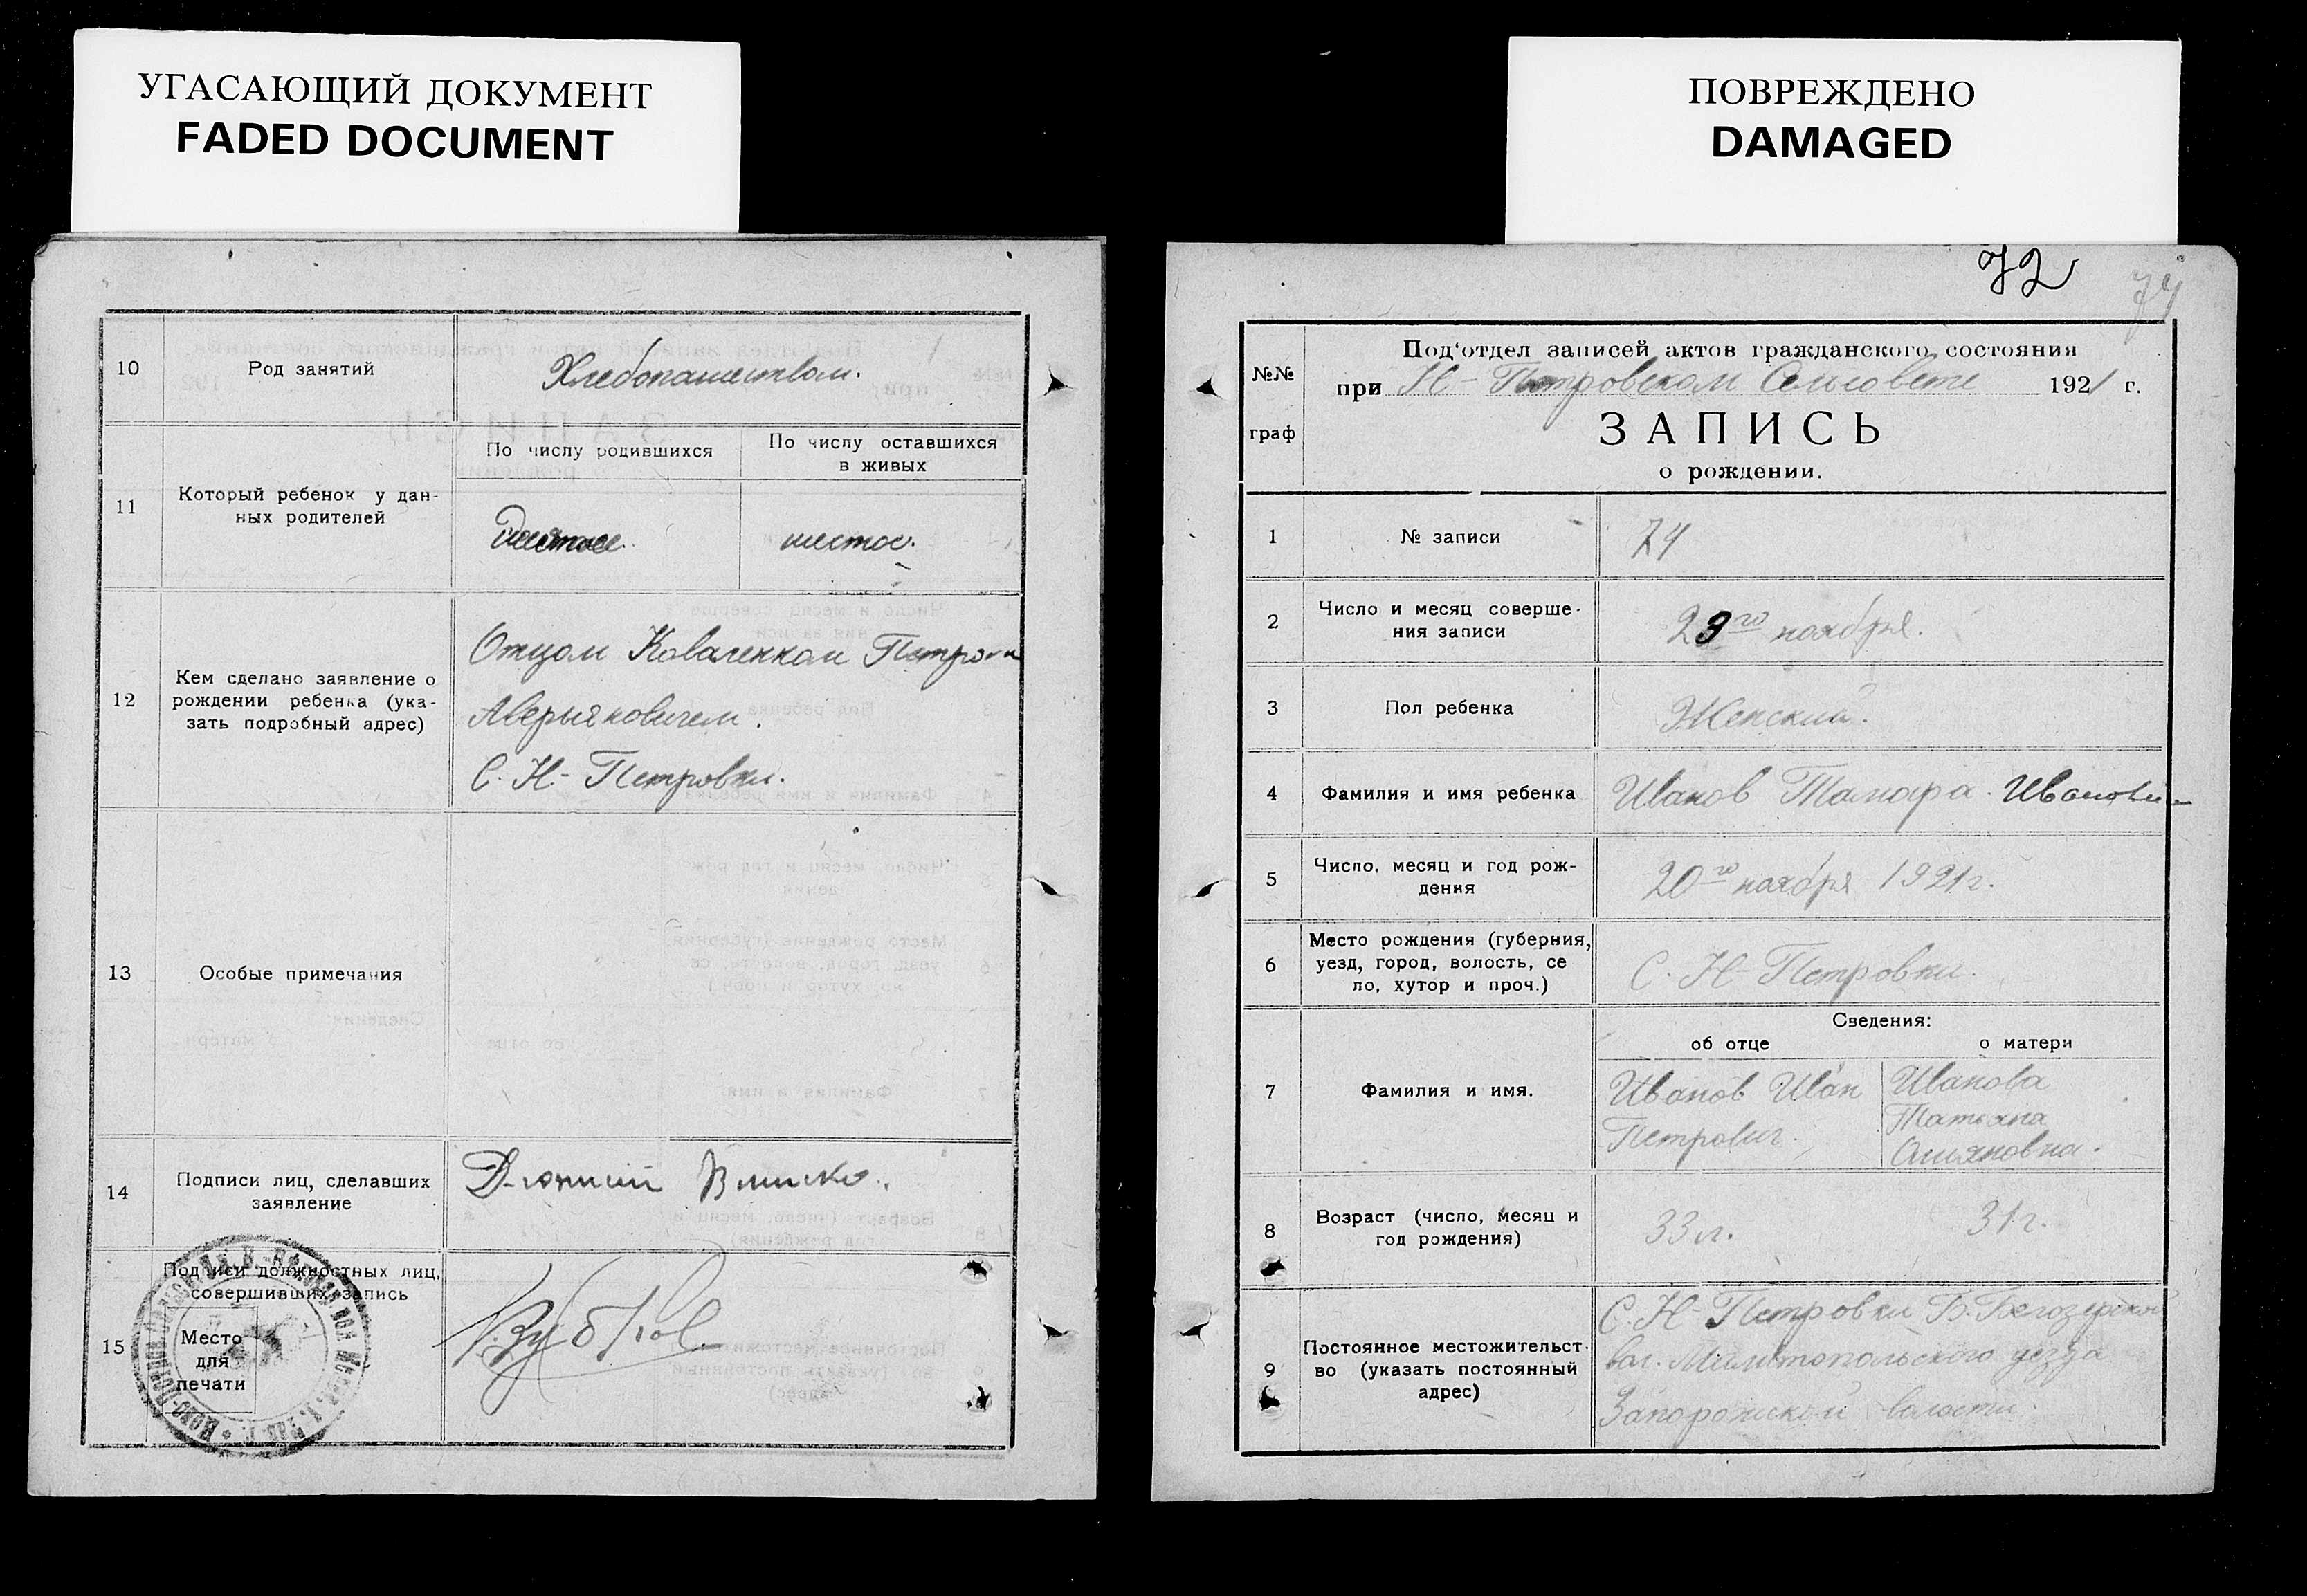 УГАСАЮЩИЙ ДОКУМЕНТ
FADED DOCUMENT
10
Род занятий
Хлебопашеством.
11
Который ребенок у дан-
ных родителей
По числу родившихся
По числу оставшихся
в живых
шестое.
12
Кем сделано заявление о
рождении ребенка (ука-
зать подробный адрес)
Отцом Коваленком Петром
Аверьяновичем.
С. Н-Петровки.
13
Особые примечания
14
Подписи лиц, сделавших
заявление
15
Подписи должностных лиц,
совершивших запись
Место
для
печати
ПОВРЕЖДЕНО
DAMAGED
72
74
№№
граф
Под'отдел записей актов гражданского состояния
при Н-Петровском Сельсовете 1921 г.
ЗАПИСЬ
о рождении.
1
№ записи
74
2
Число и месяц соверше-
ния записи
23го ноября.
3
Пол ребенка
Женский.
4
Фамилия и имя ребенка
Иванов Тамара. Ивановн
5
Число, месяц и год рож-
дения
20го ноября 1921г.
6
Место рождения (губерния,
уезд, город, волость, се
ло, хутор и проч.)
С. Н-Петровки.
7
Фамилия и имя.
Сведения:
об отце
о матери
Иванов Иван
Петрович.
Иванова
Татьяна
8
Возраст (число, месяц и
год рождения)
33 л.
31 г.
9
Постоянное местожительст-
во (указать постоянный
адрес)
С. Н-Петровки Б. Белозерской
вол. Мелитопольского уезда
Запорожской волости.